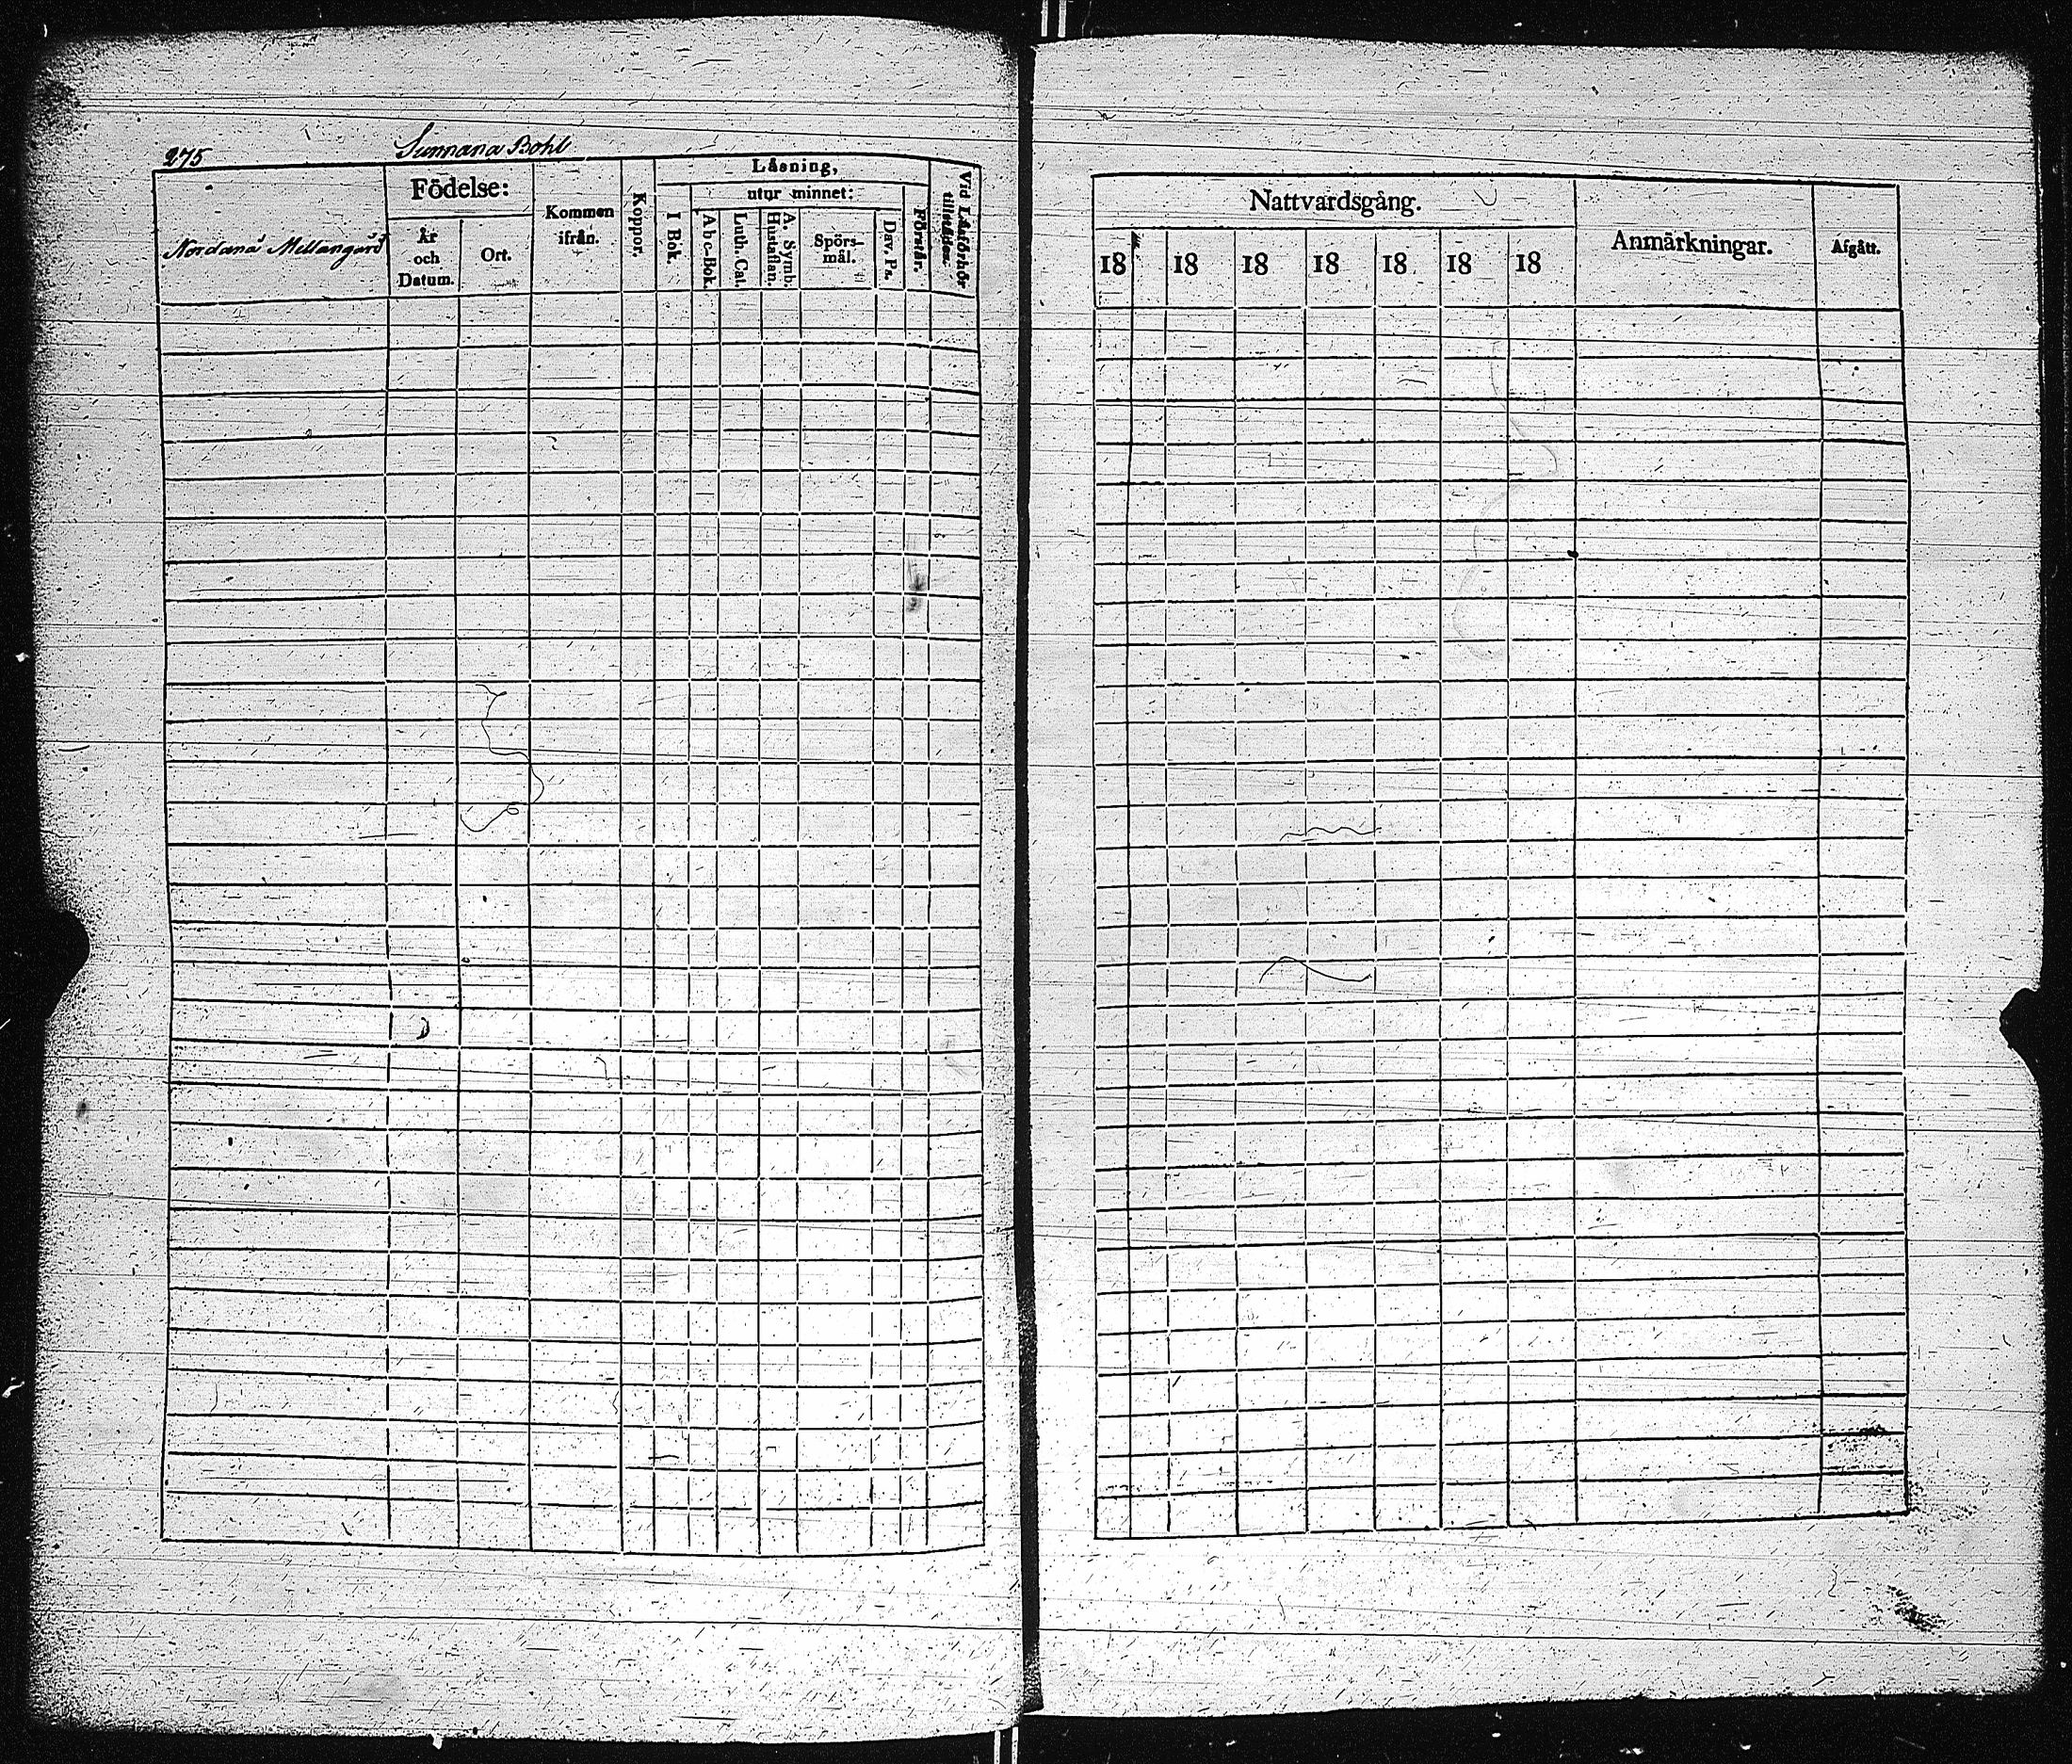 275 Sunnanå Bohl
Nordanå Mellangård
Födelse:
År och Datum.
Ort.
Kommen ifrån.
Koppor.
Läsning,
I Bok.
utur minnet:
Abc-Bok.
Luth. Cat.
A. Symb. Hustaflan.
Spörsmål.
Dav. Ps.
Förstår.
Vid Läsförhör tillstädes.
Nattvardsgång.
18 18 18 18 18 18 18
Anmärkningar.
Afgått.